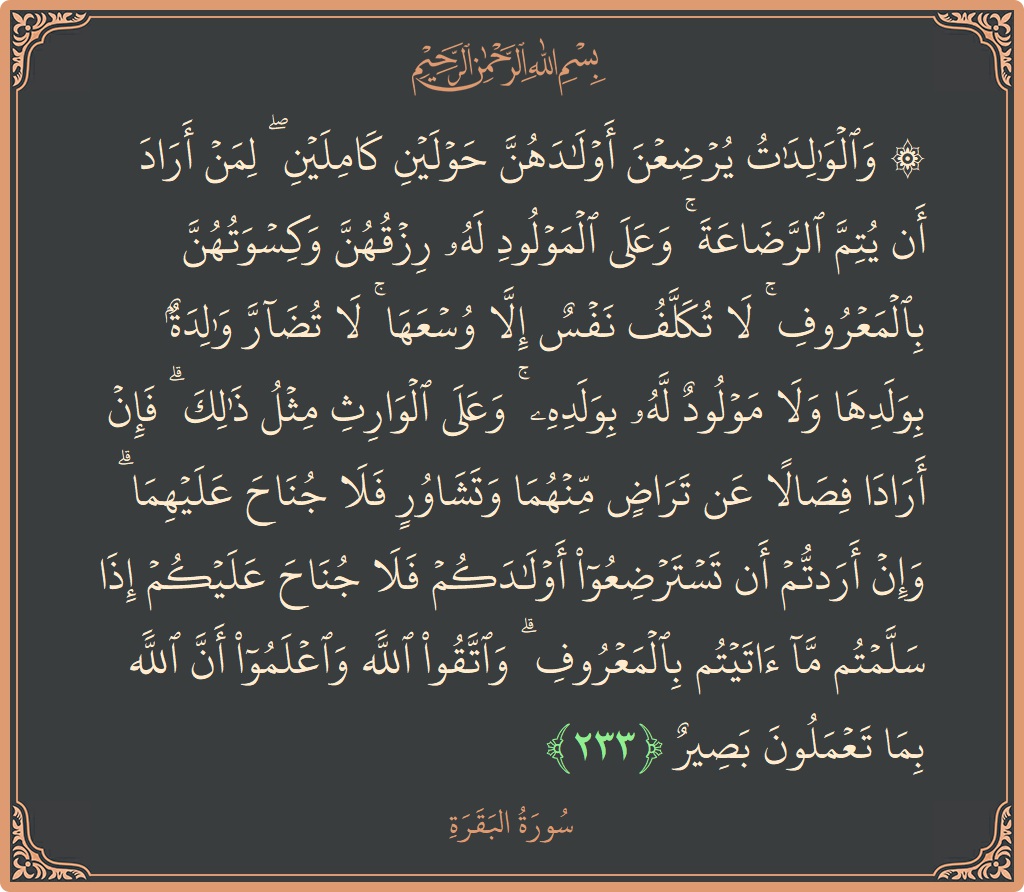 بِسْمِ ٱللَّهِ ٱلرَّحْمَٰنِ ٱلرَّحِيمِ
۞ وَٱلْوَٰلِدَٰتُ يُرْضِعْنَ أَوْلَٰدَهُنَّ حَوْلَيْنِ كَامِلَيْنِ ۖ لِمَنْ أَرَادَ
أَن يُتِمَّ ٱلرَّضَاعَةَ ۚ وَعَلَى ٱلْمَوْلُودِ لَهُۥ رِزْقُهُنَّ وَكِسْوَتُهُنَّ
بِٱلْمَعْرُوفِ ۚ لَا تُكَلَّفُ نَفْسٌ إِلَّا وُسْعَهَا ۚ لَا تُضَآرَّ وَٰلِدَةٌۢ
بِوَلَدِهَا وَلَا مَوْلُودٌ لَّهُۥ بِوَلَدِهِۦ ۚ وَعَلَى ٱلْوَارِثِ مِثْلُ ذَٰلِكَ ۗ فَإِنْ
أَرَادَا فِصَالًا عَن تَرَاضٍ مِّنْهُمَا وَتَشَاوُرٍ فَلَا جُنَاحَ عَلَيْهِمَا ۗ
وَإِنْ أَرَدتُّمْ أَن تَسْتَرْضِعُوٓا۟ أَوْلَٰدَكُمْ فَلَا جُنَاحَ عَلَيْكُمْ إِذَا
سَلَّمْتُم مَّآ ءَاتَيْتُم بِٱلْمَعْرُوفِ ۗ وَٱتَّقُوا۟ ٱللَّهَ وَٱعْلَمُوٓا۟ أَنَّ ٱللَّهَ
بِمَا تَعْمَلُونَ بَصِيرٌ ﴿٢٣٣﴾
سُورَةُ البَقَرَةِ